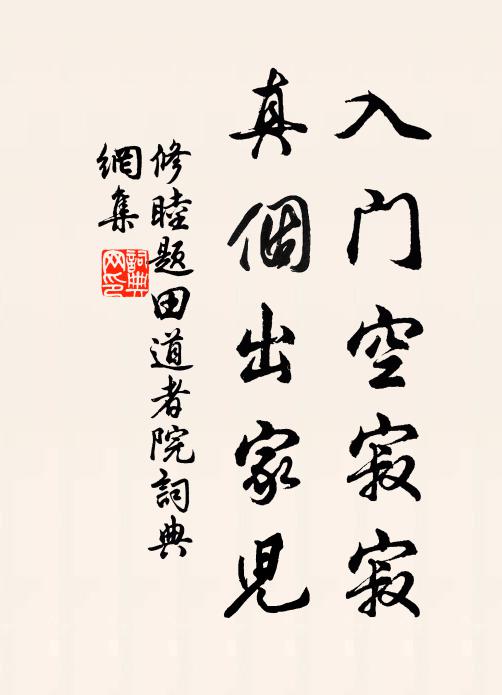 入门空寂寂
真個出家児
修睦题田道者院詞典
網集
詞典
网印